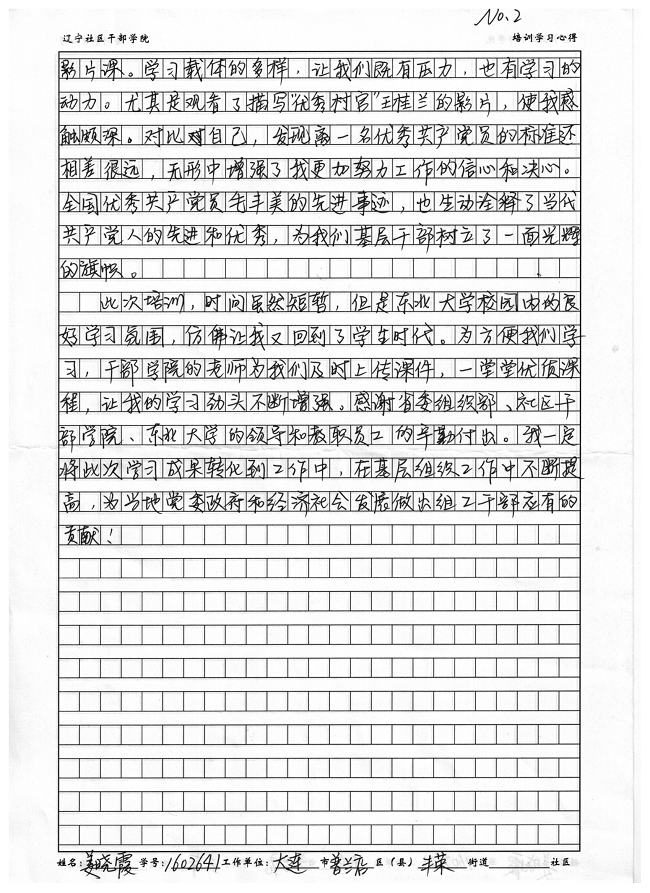 No.2
辽宁社区干部学院 培训学习心得
影片课。学习载体的多样，让我们既有压力，也有学习的
动力。尤其是观看了描写“优秀村官”王桂兰的影片，使我感
触颇深。对比对自己，发现离一名优秀共产党员的标准还
相差很远，无形中增强了我更加努力工作的信心和决心。
全国优秀共产党员毛丰美的先进事迹，也生动诠释了当代
共产党人的先进和优秀，为我们基层干部树立了一面光辉
的旗帜。
此次培训，时间虽然短暂，但是东北大学校园内的良
好学习氛围，仿佛让我又回到了学生时代。为方便我们学
习，干部学院的老师为我们及时上传课件，一堂堂优质课
程，让我的学习劲头不断增强。感谢省委组织部、社区干
部学院、东北大学的领导和教职员工的辛勤付出。我一定
将此次学习成果转化到工作中，在基层组织工作中不断提
高，为当地党委政府和经济社会发展做出组工干部应有的
贡献！
姓名：姜晓霞 学号：1602641 工作单位：大连 市 普兰店 区（县） 丰荣 街道 社区